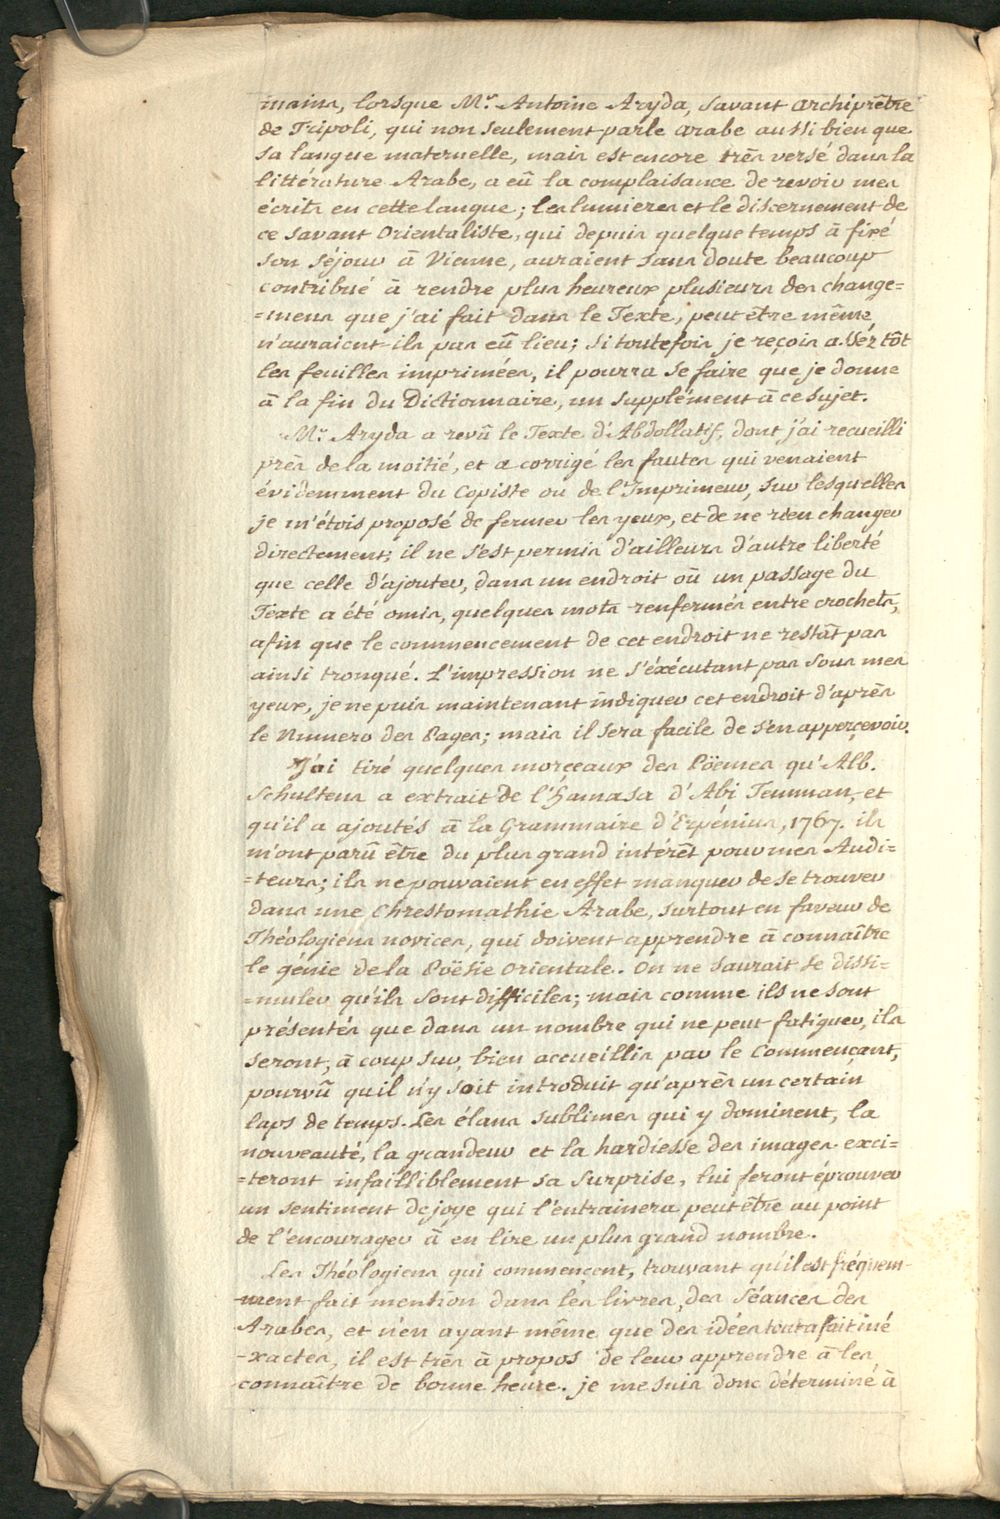 mains, lorsque Mr. Antoine Aryda, savant archiprêtre
de Tripoli, qui non seulement parle arabe aussi bien que
sa langue maternelle, mais est encore très versé dans la
littérature Arabe, a eû la complaisance de revoir mes
écrits en cette langue; les lumieres et le discernement de
ce savant Orientaliste, qui depuis quelque temps à fixé
son séjour à Vienne, auraient sans doute beaucoup
contribué à rendre plus heureux plusieurs des change=
=mens que j'ai fait dans le Texte, peut être même
n'auraient ils pas eû lieu; si toutefois je reçois asséz tôt
les feuilles imprimées, il pourra se faire que je donne
à la fin du Dictionnaire, un supplément à ce sujet.
Mr. Aryda a revû le Texte d'Abdollatif, dont j'ai recueilli
près de la moitié, et a corrigé les fautes qui venaient
évidemment du Copiste ou de l'Imprimeur, sur lesquelles
je m'étois proposé de fermer les yeux, et de ne rien changer
directement; il ne s'est permis d'ailleurs d'autre liberté
que celle d'ajouter, dans un endroit où un passage du
Texte a été omis, quelques mots renfermés entre crochets,
afin que le commencement de cet endroit ne restât pas
ainsi tronqué. L'impression ne s'éxécutant pas sous mes
yeux, je ne puis maintenant indiquer cet endroit d'après
le Numero des Pages; mais il sera facile de s'en apperçevoir.
J'ai tiré quelques morçeaux des Poëmes qu'Alb.
Schultens a extrait de l'Hamasa d'Abi Temman, et
qu'il a ajoutés à la Grammaire d'Erpénius, 1767. ils
m'ont parû être du plus grand intérêt pour mes Audi=
=teurs; ils ne pouvaient en effet manquer de se trouver
dans une Chrestomathie Arabe, surtout en faveur de
Théologiens novices, qui doivent apprendre à connaître
le génie de la Poësie Orientale. On ne saurait se dissi=
=muler qu'ils sont difficiles; mais comme ils ne sont
présentés que dans un nombre qui ne peut fatiguer, ils
seront, à coup sur, bien accueillis par le Commençant,
pourvû qu'il n'y soit introduit qu'après un certain
laps de temps. Les élans sublimes qui y dominent, la
nouveauté, la grandeur et la hardiesse des images exci=
=teront infailliblement sa surprise, lui feront éprouver
un sentiment de joye qui l'entrainera peut être au point
de l'encourager à en lire un plus grand nombre.
Les Théologiens qui commencent, trouvant qu'il est fréquem-
-ment fait mention dans les livres, des Séances des
Arabes, et n'en ayant même que des idées tout a fait iné
-xactes, il est très à propos de leur apprendre à les
connaître de bonne heure. je me suis donc déterminé à